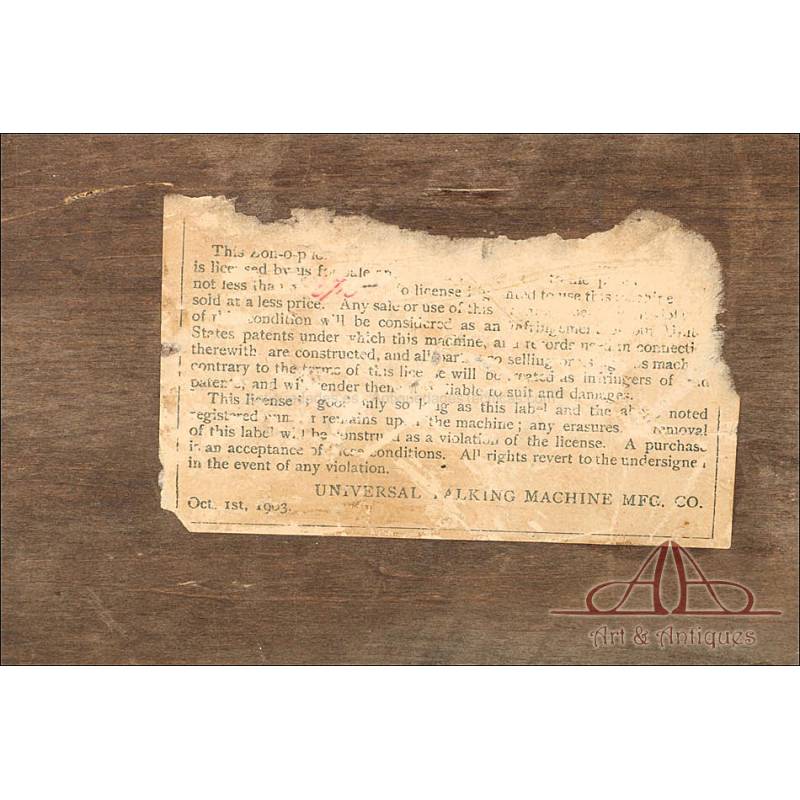 This
is licensed by us for sale
not less than license to use this
sold at a less price. Any sale or use of this
of condition will be considered as an infringement
States patents under which this machine, and records used in
therewith are constructed, and all selling
contrary to the terms of this license will be treated as infringers of
patents, and will render them liable to suit and damages.
This license is good only so long as this label and the above noted
registered number remains upon the machine; any erasures removal
of this label will be construed as a violation of the license. A
is an acceptance of these conditions. All rights revert to the
in the event of any violation.
UNIVERSAL TALKING MACHINE MFG. CO.
Oct. 1st, 1903.
Art & Antiques